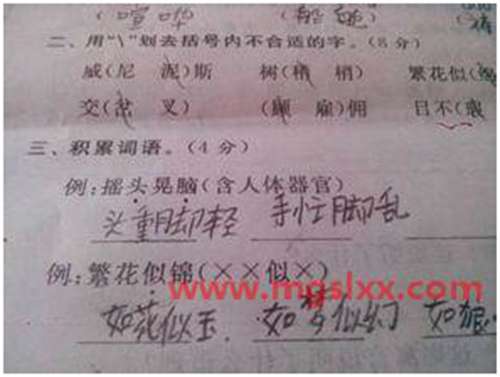 喧哗
二、用"\"划去括号内不合适的字。(8分)
威(尼 泥)斯 树(稍 梢) 繁花似(
交(岔 叉) (顾 雇)佣 目不(
三、积累词语。(4分)
例:摇头晃脑(含人体器官)
头重脚轻 手忙脚乱
例:繁花似锦(××似×)
www.mgslxx.com
如花似玉. 如梦似幻 如狼